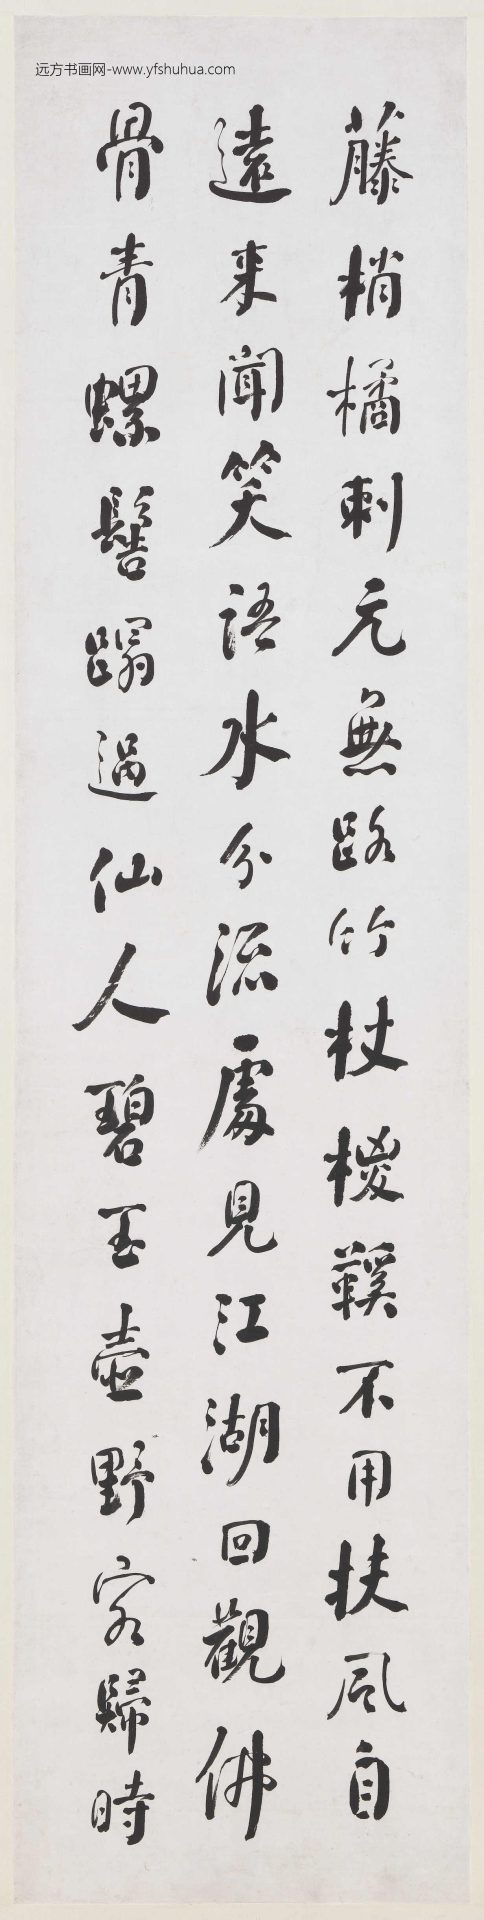 远方书画网-www.yfshuhua.com
藤梢橘刺元無路竹杖椶鞵不用扶風自
遠來聞笑語水分流處見江湖回觀佛
骨青螺髻蹋過仙人碧玉壺野客歸時